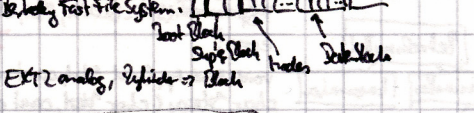 Berkeley Fast File System:
Boot Block
Super Block
Inodes
Datenblock
EXT2 analog, Zylinder => Block